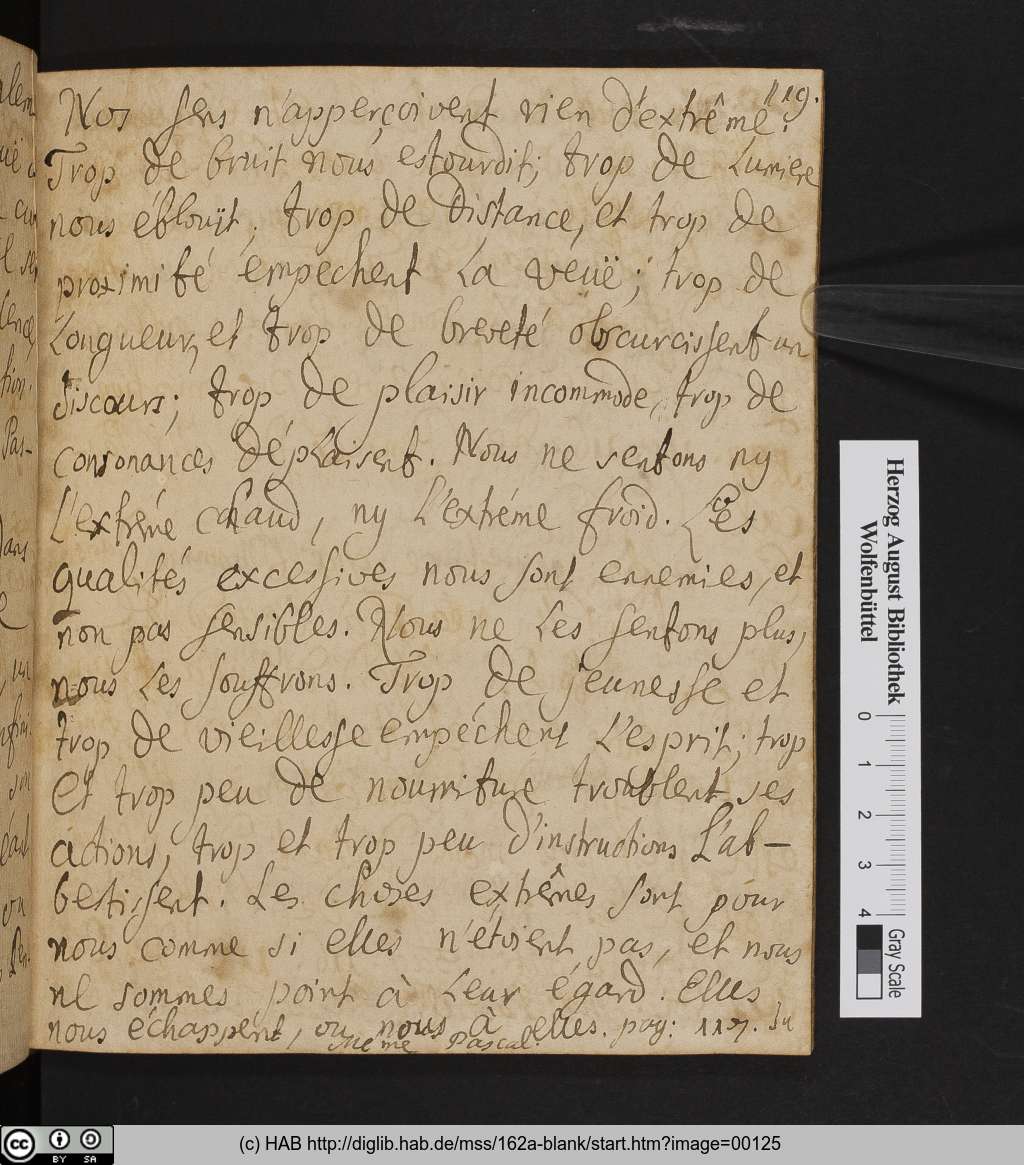 119.
Nos sens n'apperçoivent rien d'extrême.
Trop de bruit nous estourdit; trop de Lumiere
nous éblouït; trop de distance, et trop de
proximité empechent La veuë; trop de
Longueur, et trop de breveté obscurcissent un
discours; trop de plaisir incommode, trop de
consonances déplaisent. Nous ne sentons ny
L'extréme chaud, ny L'extréme froid. Les
qualités excessives nous sont ennemies, et
non pas sensibles. Nous ne Les sentons plus,
nous Les souffrons. Trop de jeunesse et
trop de vieillesse empéchent L'esprit; trop
et trop peu de nourriture troublent ses
actions, trop et trop peu d'instructions L'ab-
bestissent. Les choses extrêmes sont pour
nous comme si elles n'étoient pas, et nous
ne sommes point à Leur égard. Elles
nous échappent, ou nous à elles. pag: 117. du
méme Pascal.
Herzog August Bibliothek
Wolfenbüttel
0 1 2 3 4
Gray Scale
cc BY SA
(c) HAB http://diglib.hab.de/mss/162a-blank/start.htm?image=00125